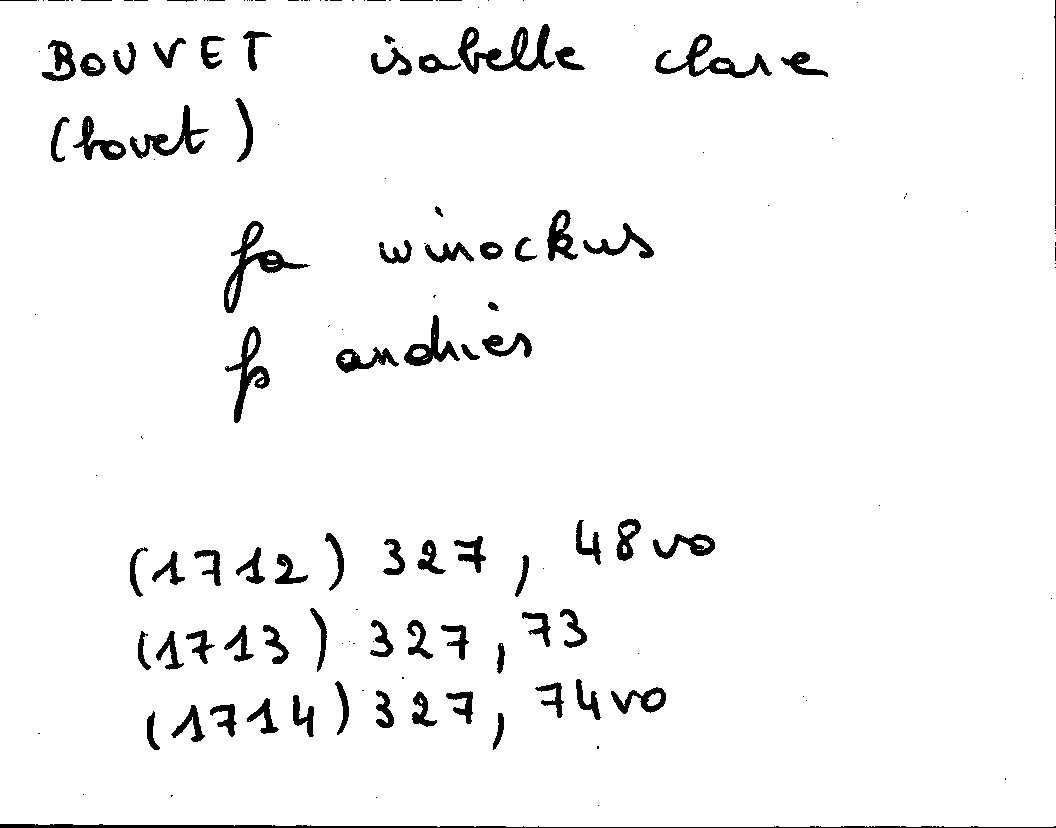 BOUVET isabelle clare
(bovet)
fa winockus
fs andries
(1712) 327, 48vo
(1713) 327, 73
(1714) 327, 74vo